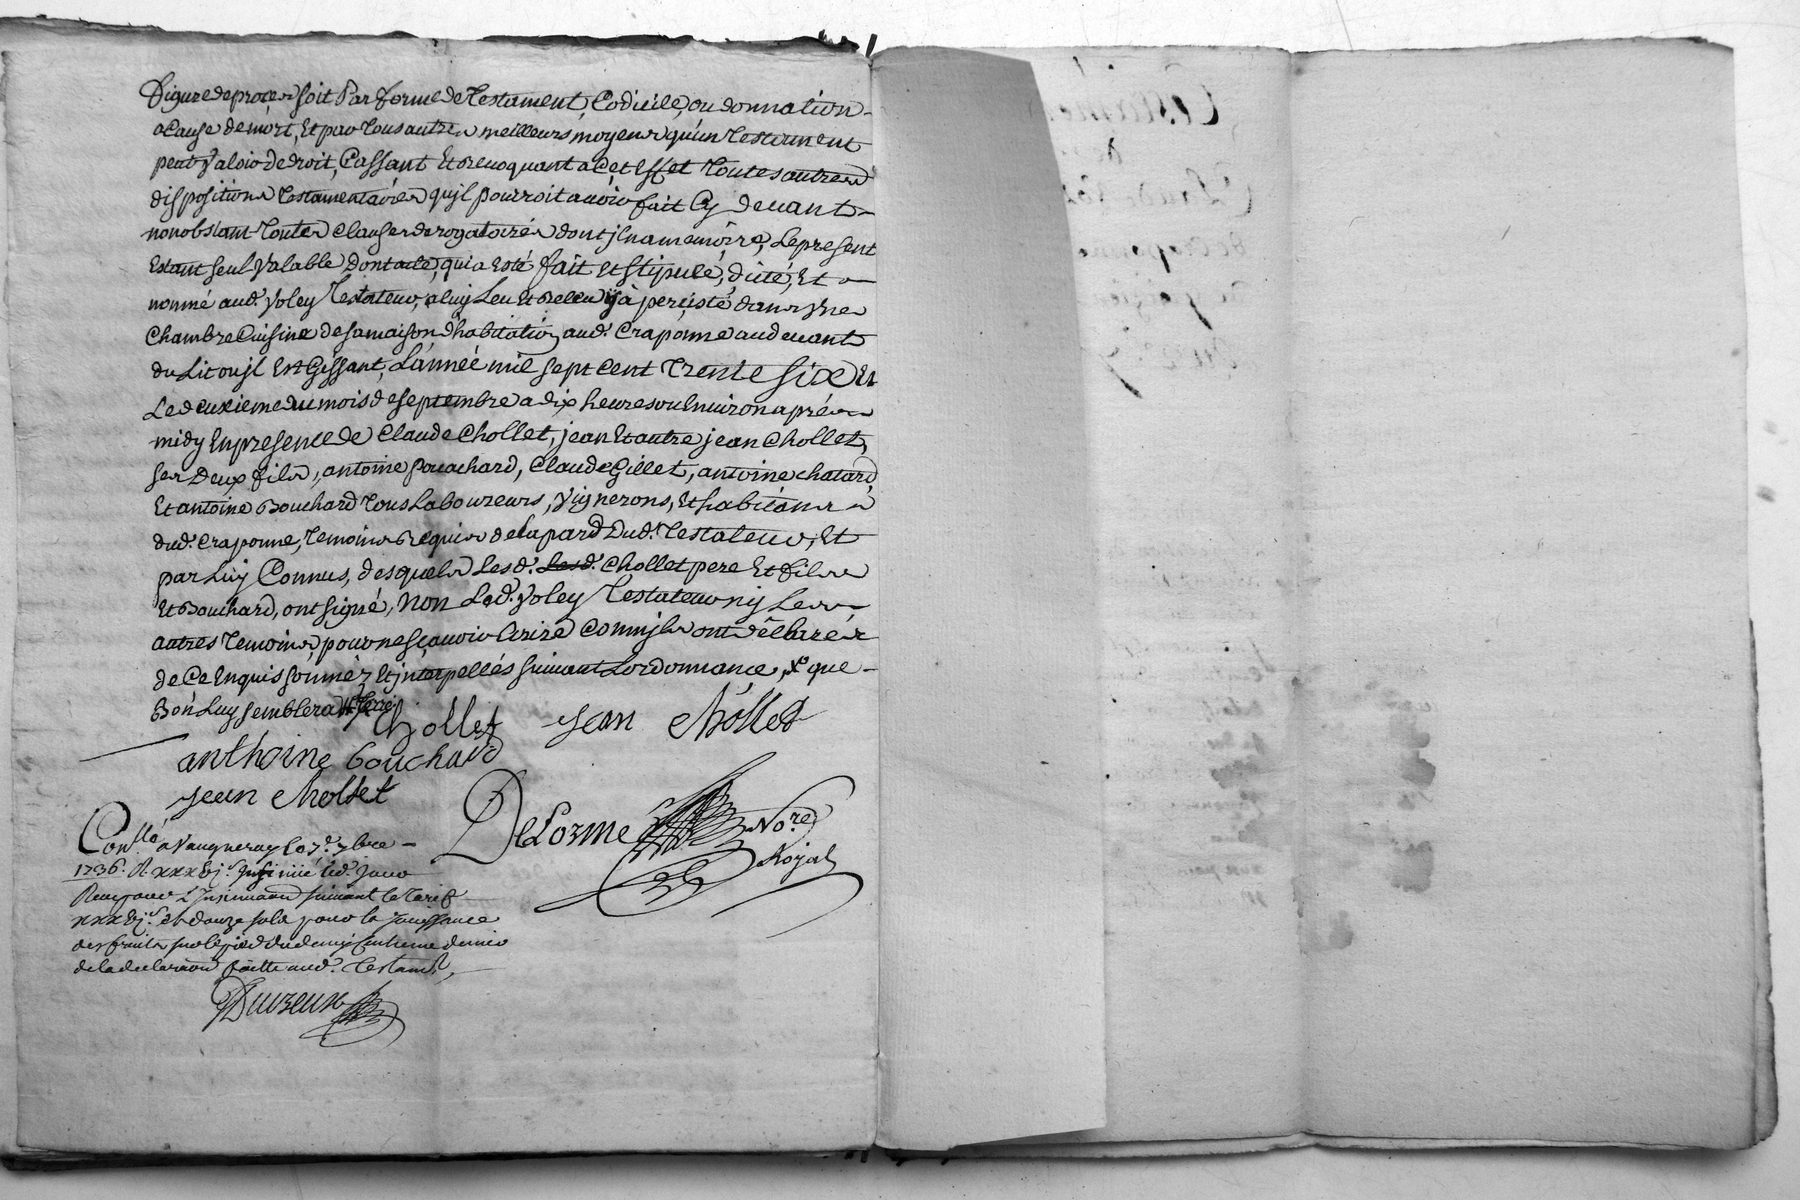 figure de proces soit Par forme de Testament, Codicile, ou donnation
a Cause de mort, Et par tous autres meilleurs moyens qu'un Testament
peut Valoir de droit, Cassant Et Revoquant a Cet Effet Toutes autres
dispositions Testamentaires qu'jl pourroit avoir fait Cy devant
nonobstant Toutes Clauses derogatoires dont jl na memoire, Le present
Estant seul Valable Dont acte, qui a Esté fait Et stipulé, dicté, Et
nommé aud. Voley Testateur, a luy Leu Et Releu y à perçisté dans Vne
Chambre Cuisine de sa maison d'habitation aud. Craponne au devant
du Lit ou jl Est Gissant, L'année mil sept Cent Trente Six Et
Le deuxieme du mois de septembre a dix heures ou Environ aprés
midy En presence de Claude Chollet, jean Et autre jean Chollet,
ses Deux fils, antoine Bouchard, Claude Gillet, antoine chatard
Et antoine Bouchard Tous Laboureurs, Vignerons, Et habitans
dud. Craponne, Temoins Requis de la pard Dud. Testateur, Et
par Luy Connus, desquels Lesd. Lesd. Chollet pere Et fils
Et Bouchard, ont signé, Non Led. Voley Testateur ny Les
autres Temoins, pour ne sçavoir Ecrire Comm jls ont déclarér
de Ce Enquis sommér Et jnterpellés suivant Lordonnance, que
Bon Luy semblera
Chollet jean Chollet
anthoine bouchard
jean Chollet
DeLorme No.re
Royal
Con.llé a Vaugneray Le 7.e 7bre
1736. R. xxxvj.s Insinüé led. jour
Reçu pour L'Insinuaon suivant le Tarif
xxxvj.s et douze sols pour la Jouissance
des fruits sur le pied du demy Centieme denier
de la declaraon faitte aud. Testam.t,
Duvreux